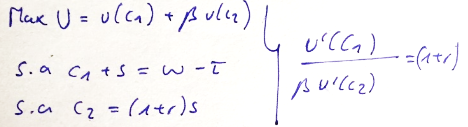 Max U = u(c1) + β u(c2)
s.a c1 + s = w - τ
s.a c2 = (1+r)s
u'(c1) / β u'(c2) = (1+r)